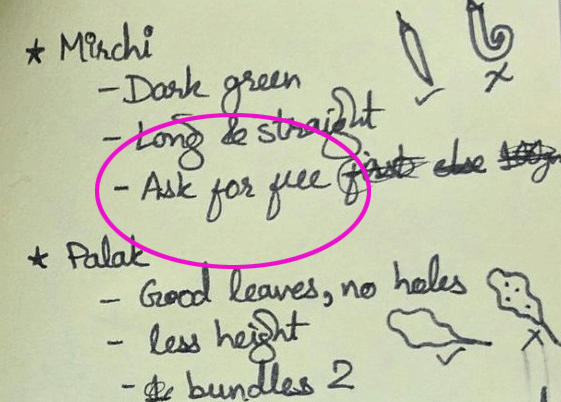 * Mirchi
- Dark green
- Long & straight
- Ask for free (first else
* Palak
- Good leaves, no holes
- less height
- bundles 2